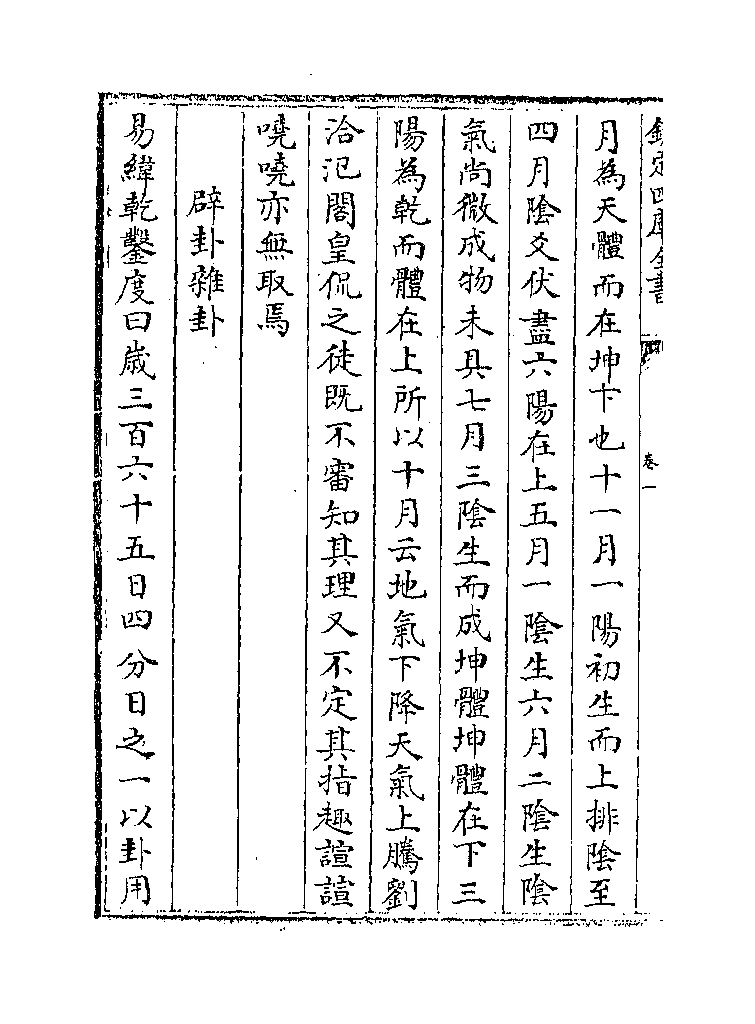 欽定四庫全書
卷一
月為天體而在坤卞也十一月一陽初生而上排陰至
四月陰爻伏盡六陽在上五月一陰生六月二陰生陰
氣尚微成物未具七月三陰生而成坤體坤體在下三
陽為乾而體在上所以十月云地氣下降天氣上騰劉
洽氾閣皇侃之徒既不審知其理又不定其指趣諠諠
嘵嘵亦無取焉
辟卦雜卦
易緯乾鑿度曰歲三百六十五日四分日之一以卦用